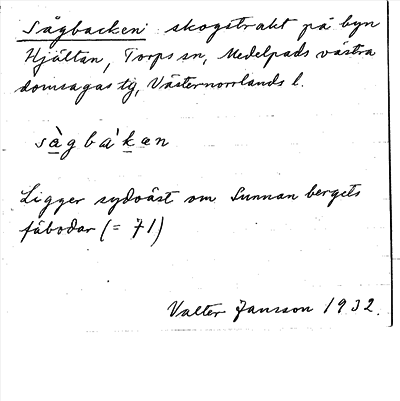 Sågbacken: skogstrakt på byn
Hjältan, Torps sn, Medelpads västra
domsagas tg, Västernorrlands l.
sågbákan
Ligger sydväst om Sunnanbergets
fäbodar (= 71)
Valter Jansson 1932.